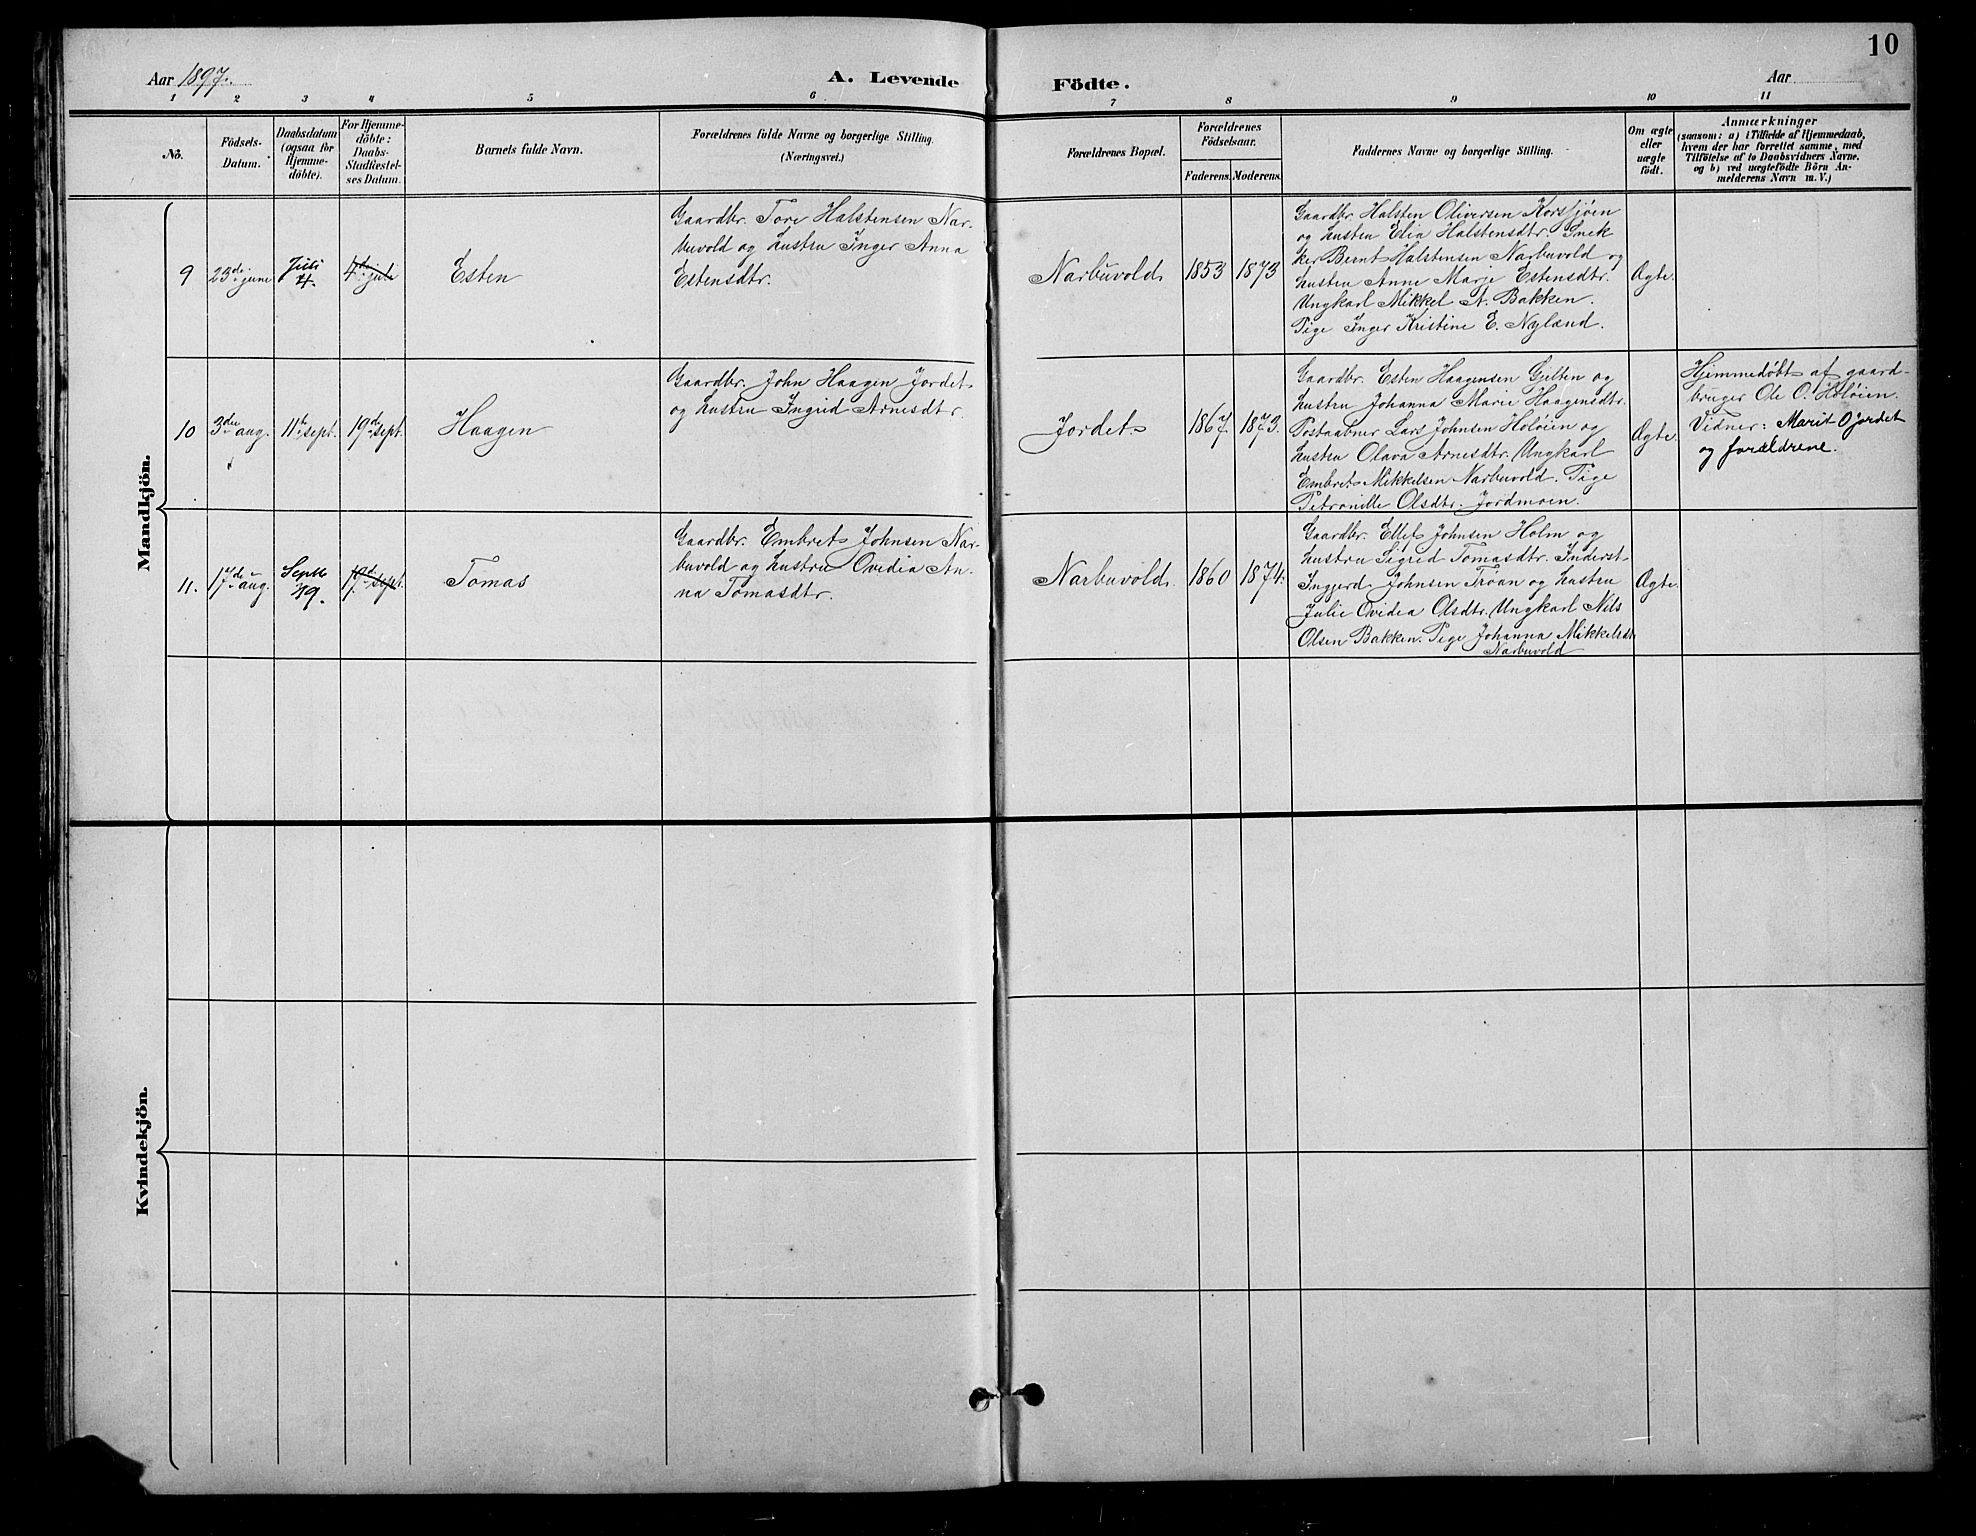 10
Aar 1897.
A. Levende Födte.
Aar
1 2 3 4 5 6 7 8 9 10 11
No.
Födsels-
Datum.
Daabsdatum
(ogsaa for
Hjemme-
döbte).
For Hjemme-
döbte:
Daabs-
Stadfæstel-
ses Datum.
Barnets fulde Navn.
Forældrenes fulde Navne og borgerlige Stilling.
(Næringsvei.)
Forældrenes Bopæl.
Forældrenes
Födselsaar.
Faderens. Moderens.
Faddernes Navne og borgerlige Stilling.
Om ægte
eller
uægte
födt.
Anmærkninger
(saasom: a) i Tilfælde af Hjemmedaab,
hvem der har forrettet samme, med
Tilföielse af to Daabsvidners Navne.
og b) ved uægtefödte Börn An-
melderens Navn m. V.)
Mandkjön.
9
23de june
Juli
4.
4de jule
Esten
Gaardbr. Tore Halstensen Nar-
buvold og hustru Inger Anna
Estensdtr.
Narbuvold
1853
1873
Gaardbr. Halsten Oliversen Korsjöen
og hustru Elia Halstensdtr. Snek
ker Bernt Halstensen Narbuvold og
hustru Anne Marie Estensdtr.
Ungkarl Mikkel A. Bakken.
Pige Inger Kristine E. Nyland.
Ægte.
10
3die aug.
11te sept.
19de sept.
Haagen
Gaardbr. John Haagen Jordet
og hustru Ingrid Arnesdtr.
Jordet
1867.
1873.
Gaardbr. Esten Haagensen Gjelten og
hustru Johanna Marie Haagensdtr.
Postaabner Lars Johnsen Holöien og
hustru Olava Arnesdtr. Ungkarl
Embret Mikkelsen Narbuvold. Pige
Petronille Olsdtr. Jordmoen.
Ægte.
Hjemmedöbt af gaard-
bruger Ole O. Holöien.
Vidner: Marit O Jordet
og forældrene.
11.
17de aug.
Septb
19.
19de sept.
Tomas
Gaardbr. Embret Johnsen Nar-
buvold og hustru Ovidia An-
na Tomasdtr.
Narbuvold
1860
1874.
Gaardbr. Ellef Johnsen Holm og
hustru Sigrid Tomasdtr. Inderst
Ingjerd Johnsen Tröan og hustru
Julie Ovidea Olsdtr. Ungkarl Nils
Olsen Bakken. Pige Johanna Mikkelsdtr
Narbuvold
Ægte.
Kvindekjön.